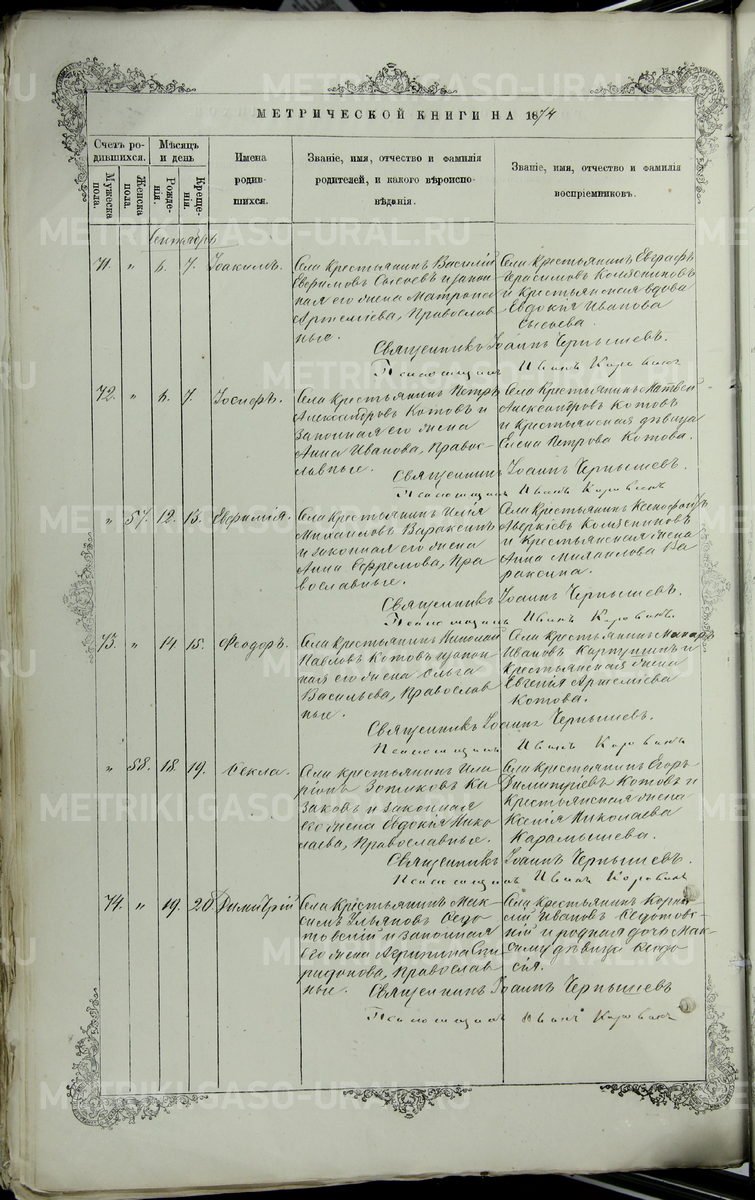 МЕТРИЧЕСКОЙ КНИГИ НА 1874
Счетъ ро-
дившихся.
Мѣсяцъ
и день
Имена
родив-
шихся.
Званіе, имя, отчество и фамилія
родителей, и какого вѣроиспо-
вѣданія.
Званіе, имя, отчество и фамилія
воспріемниковъ.
Мужеска
пола.
Женска
пола.
Рожде-
нія.
Креще-
нія.
Сентябрь
71. " 6. 7. Іоакимъ.
Села Крестьянинъ Василій
Евфимовъ Сысоевъ и закон
ная его жена Матрона
Артеміева, Православ
ные.
Села Крестьянинъ Евграфъ
Герасимовъ Колясниковъ
и Крестьянская вдова
Евдокія Иванова
Сысоева.
Священникъ Іоаннъ Чернышевъ.
Псаломщикъ Иванъ Коровинъ
72. " 6. 7. Іосифъ.
Села Крестьянинъ Петръ
Александровъ Котовъ и
законная его жена
Анна Иванова, Правос-
лавные.
Села Крестьянинъ Матвей
Александровъ Котовъ
и крестьянская дѣвица
Елена Петрова Котова.
Священникъ Іоаннъ Чернышевъ.
Псаломщикъ Иванъ Коровинъ
" 57. 12. 13. Евфимія.
Села Крестьянинъ Илія
Михаиловъ Вараксинъ
и законная его жена
Анна Ефремова, Пра
вославные.
Села Крестьянинъ Ксенофонтъ
Аверкіевъ Колясниковъ
и Крестьянская жена
Анна Михаилова Ва
раксина.
Священникъ Іоаннъ Чернышевъ.
Псаломщикъ Иванъ Коровинъ.
73. " 14 15. Ѳеодоръ.
Села Крестьянинъ Николай
Павловъ Котовъ и закон
ная его жена Ольга
Васильева, Православ
ные.
Села Крестьянинъ Макаръ
Ивановъ и
Крестьянская жена
Евгенія Артеміева
Котова.
Священникъ Іоаннъ Чернышевъ.
Псаломщикъ Иванъ Коровинъ
" 58. 18. 19. Ѳекла.
Села крестьянинъ Ила
ріонъ Зотиковъ Ка
заковъ и законная
его жена Евдокія Нико
лаева, Православные.
Села Крестьянинъ Егоръ
Димитріевъ Котовъ и
Крестьянская жена
Ксенія Николаева
Карамышева.
Священникъ Іоаннъ Чернышевъ.
Псаломщикъ Иванъ Коровинъ
74. " 19. 20 Димитрій
Села Крестьянинъ Мак-
симъ Ульяновъ Ѳедо
товскій и законная
его жена Агрипина Спи
ридонова, Православ
ные.
Села Крестьянинъ
Ивановъ Ѳедотовс-
кій и родная дочь Мак-
сима дѣвица Ѳеодо-
сія.
Священникъ Іоаннъ Чернышевъ
Псаломщикъ Иванъ Коровинъ
METRIKI.GASO-URAL.RU